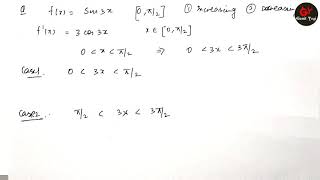 Q f(x) = Sin 3x [0, π/2] ① increasing ② decreasin
f'(x) = 3 cos 3x x ∈ [0, π/2]
0 < x < π/2 ⇒ 0 < 3x < 3π/2
Case1 0 < 3x < π/2
Case2:- π/2 < 3x < 3π/2